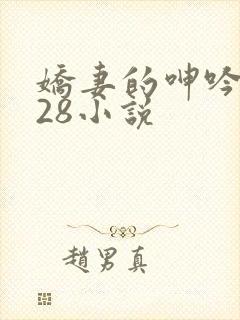 嬌妻的呻吟
28小說
趙男真